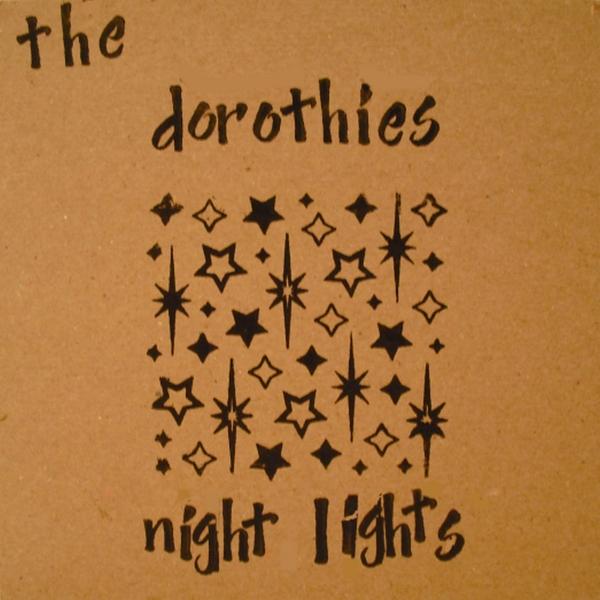 the
dorothies
night lights